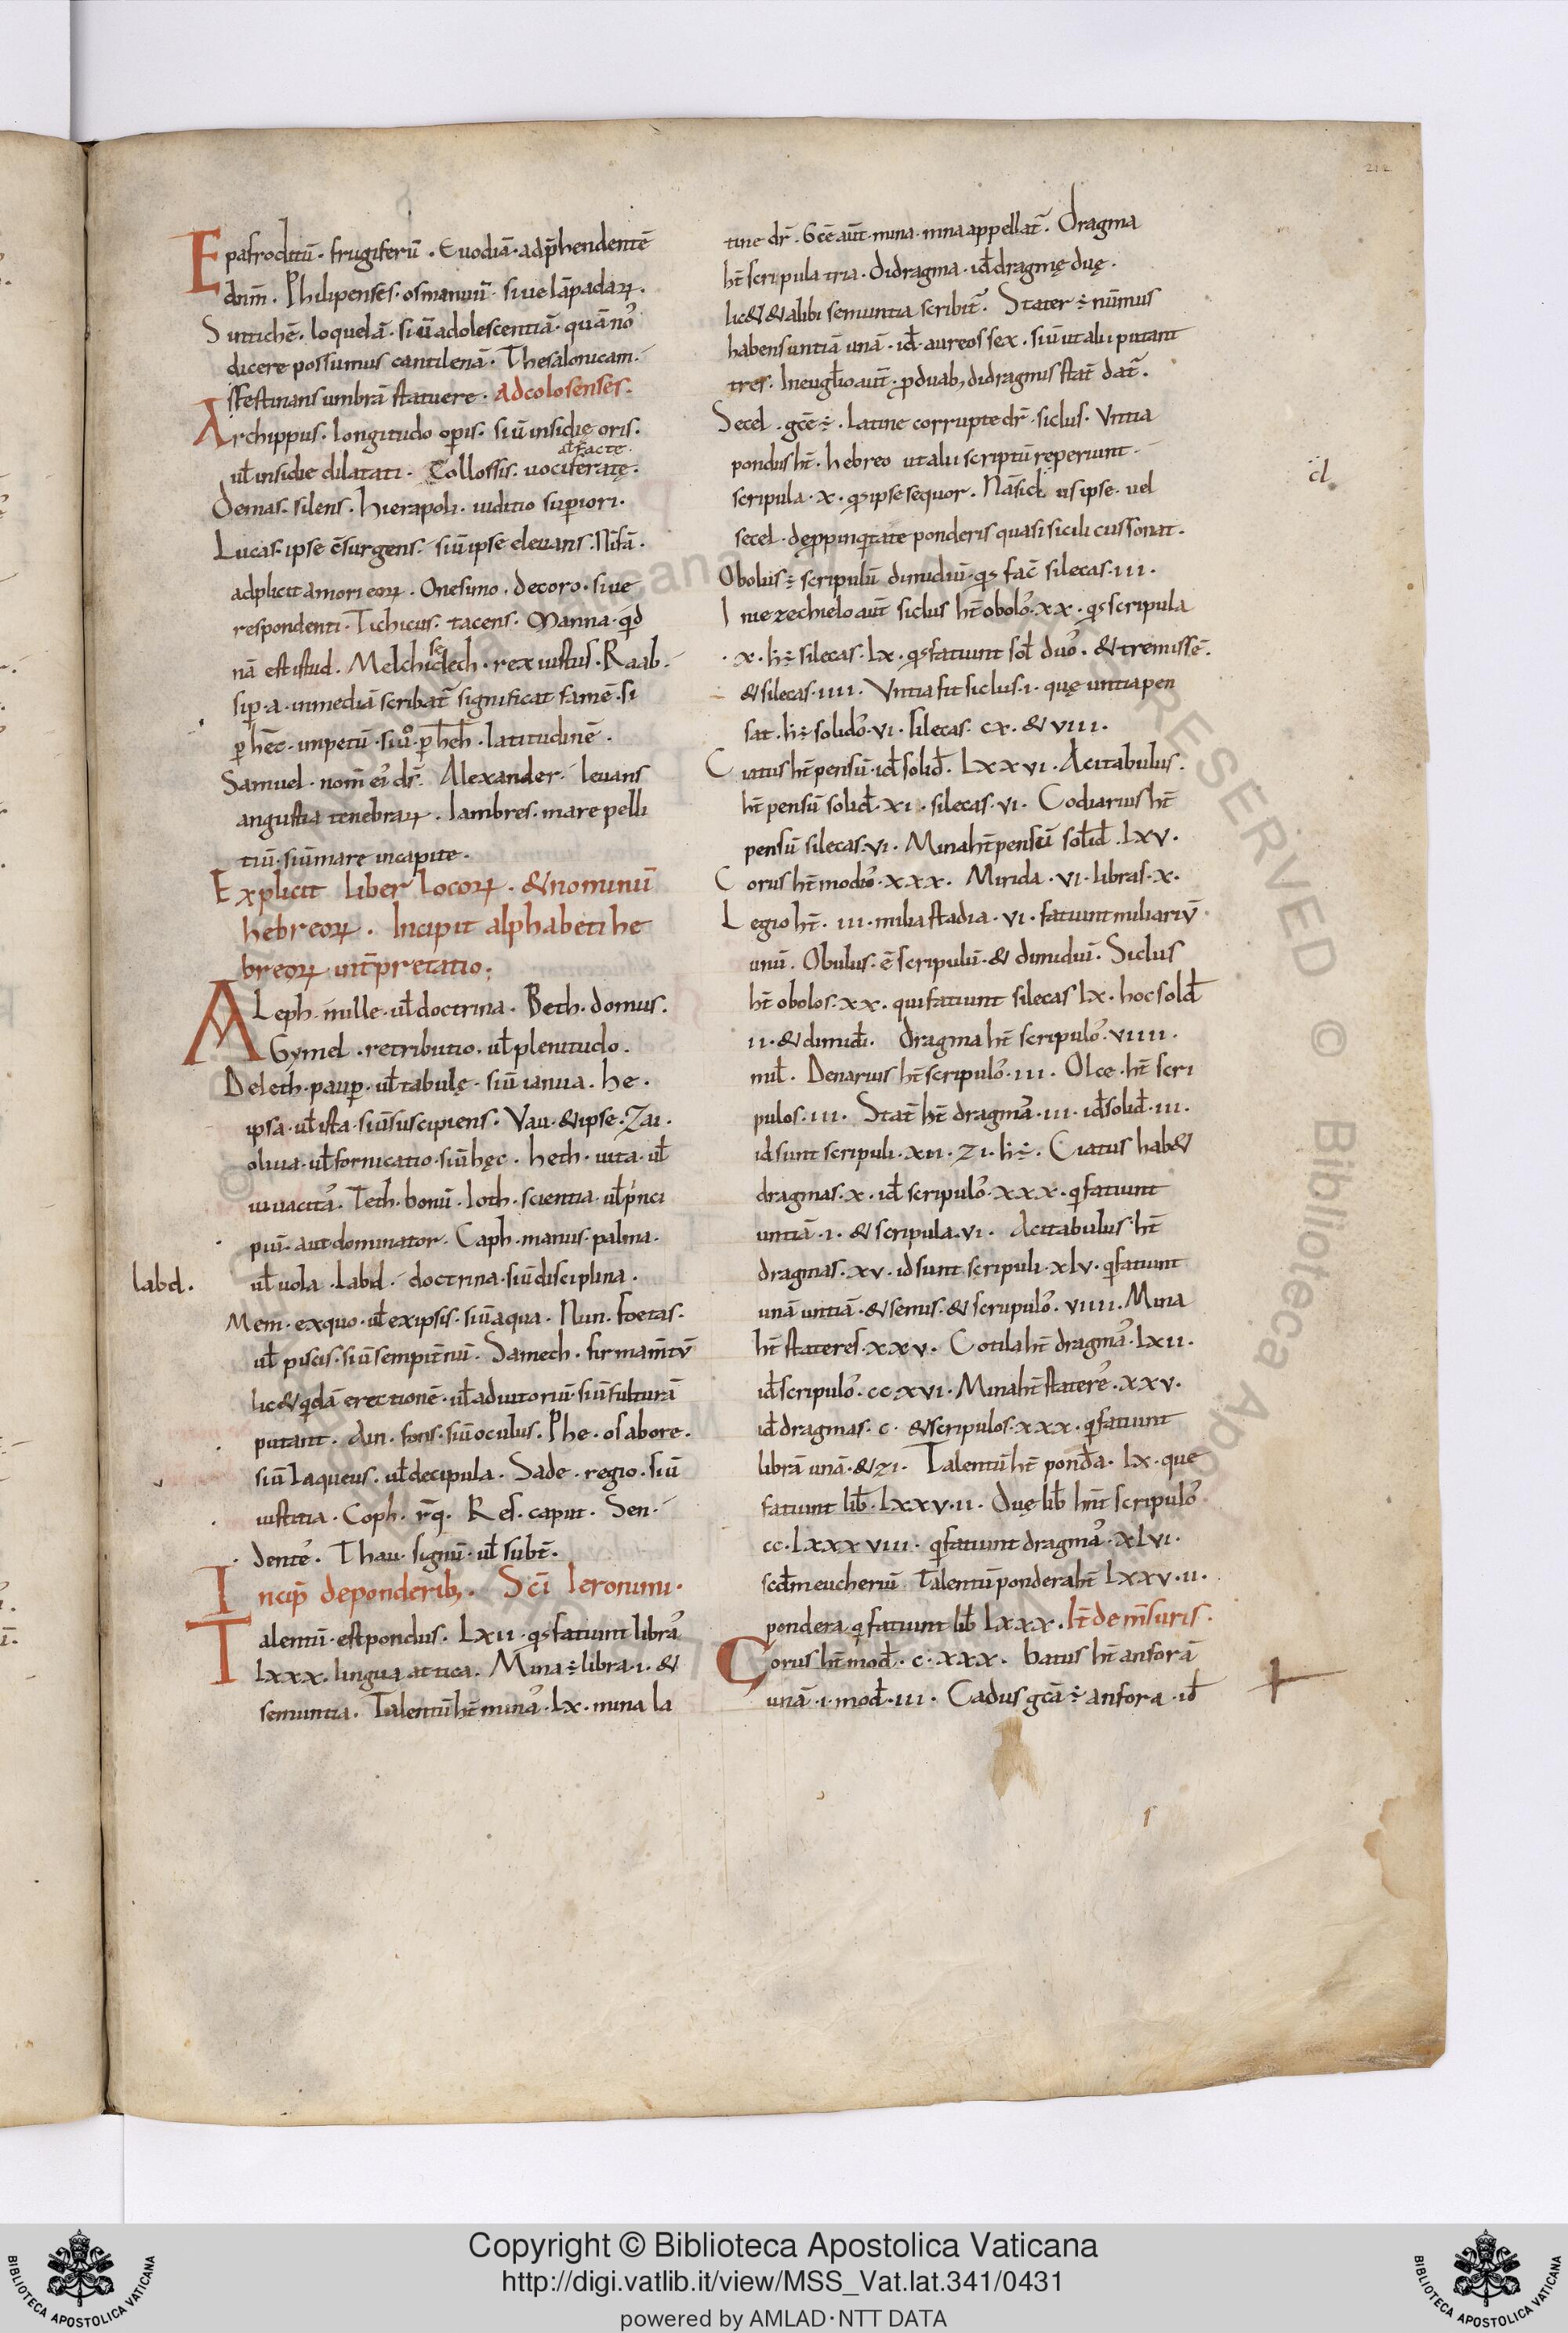 212
Epafroditū · frugiferū · Euodiā · adp̄hendentē
dnm̄ · Philipenses · os manuū · siue lāpadaꝝ ·
Sintichē · loquelā · siū adolescentiā · quā nos
dicere possumus cantilenā · Thesalonicam ·
festinans umbrā statuere · Adcolosenses ·
Archippus · longitudo opis · siū insidie oris ·
ał facte ·
uł insidie dilatati · Collossis · uociferatę ·
Demas · silens · hierapoli · iuditio supiori ·
Lucas · ipse c̄surgens · siū ipse eleuans · Nifā ·
adplicit amori eoꝝ · Onesimo · decoro · siue
respondenti · Tichicus · tacens · Manna · qd
nā est istud · Melchisedech · rex iustus · Raab ·
si p · a · in mediā scribat̄ significat famē · si
p hec · impetū · siū p heh · latitudinē ·
Samuel · nom̄ ei' dr̄ · Alexander · leuans
angustia tenebraꝝ · Iambres · mare pelli
tiū · siū mare in capite ·
Explicit liber locoꝝ · & nominū
hebreoꝝ · Incipit alphabeti he
breoꝝ int̄pretatio ·
ALeph · mille · uł doctrina · Beth · domus ·
Gymel · retributio · uł plenitudo ·
Deleth · paup · uł tabulę · siū ianua · he ·
ipsa · uł ista · siū suscipiens · Vau · & ipse · Zai ·
oliua · uł fornicatio · siū hęc · heth · uita · uł
uiuacitas · Teth · bonū · Ioth · scientia · uł princi
piū · aut dominator · Caph · manus · palma ·
labd ·
uł uola · Labd · doctrina · siū disciplina ·
Mem · ex quo · uł ex ipsis · siū aqua · Nun · foetas ·
uł piscis · siū sempit̄nū · Samech · firmam̄tū
lic& qdā erectionē · uł adiutoriū · siū fulturā
putant · Ain · fons · siū oculus · Phe · os ab ore ·
siū laqueus · uł decipula · Sade · regio · siū
iustitia · Coph · rq̄ · Res · caput · Sen ·
dentes · Thau · signū · uł subt̄ ·
Incip̄ de ponderib; · Sc̄i Ieronimi ·
Talentū · est pondus · Lxii · qs fatiunt libras
Lxxx · lingua attica · Mina ÷ libra · i · &
semuntia · Talentū ht̄ minas · Lx · mina la
tine dr̄ · Gcē aūt mina · mna appellat̄ · Dragma
ht̄ scripula tria · Didragma · id dragmę duę ·
lic& & alibi semuntia scribit̄ · Stater ÷ nūmus
habens untiā unā · id aureos sex · siū ut alii putant
tres · In euglio aūt · p duab; didragmis stat̄ dat̄ ·
Secel · gcē ÷ · Latine corrupte dr̄ · siclus · Vntia
pondus ht̄ · hebreo ut alii scriptū reperiunt ·
c̈l
scripula · x · qs ipse sequor · Nā sicł us ipse · uel
secel · de ppinqtate ponderis quasi sicili cus sonat ·
Obolus ÷ scripulū dimidiū · qs fac̄ silecas · iii ·
In iezechielo aūt siclus ht̄ obolos · xx · qs scripula
· x · h ÷ silecas · Lx · qs fatiunt sol duos · & tremissē ·
& silecas · iiii · Vntia fit siclus · i · quę untia pen
sat · h ÷ solidos · vi · silecas · cx · & viii ·
Ciatus ht̄ pensū · id solid · Lxxvi · Acitabulus ·
ht̄ pensū solid · xi · silecas · vi · Codiarius ht̄
pensū silecas · vi · Mina ht̄ pensū solid · Lxv ·
Corus ht̄ modios · xxx · Mirida · vi · libras · x ·
Legio ht̄ · iii · milia stadia · vi · fatiunt miliariū
unū · Obulus · ē scripulū · & dimidiū · Siclus
ht̄ obolos · xx · qui fatiunt silecas Lx · hoc sold
ii · & dimid · Dragma ht̄ scripulos · viiii ·
mił · Denarius ht̄ scripulos · iii · Olce · ht̄ scri
pulos · iii · Stat̄ ht̄ dragmas · iii · id solid · iii ·
id sunt scripuli · xii · zi · h ÷ · Ciatus hab&
dragmas · x · id scripulos · xxx · q fatiunt
untiā · i · & scripula · vi · Acitabulus · ht̄
dragmas · xv · id sunt scripuli · xlv · q fatiunt
unā untiā · & semis · & scrupulos · viiii · Mina
ht̄ stateres · xxv · Cotila ht̄ dragmas · Lxii ·
id scripulos · cc · xvi · Mina ht̄ stateres · xxv ·
id dragmas · c · & scripulos · xxx · q fatiunt
librā unā · & zi · Talentū ht̄ ponda · Lx · que
fatiunt lib · Lxxv · ii · Duę lib hnt̄ scripulos
cc · Lxxxviii · q fatiunt dragmas · xlvi ·
scdm eucheriū Talentū pondera ht̄ Lxxv · ii ·
pondera q fatiunt lib Lxxx · It̄ de m̄suris ·
Corus ht̄ mod · c · xxx · batus ht̄ anforā
unā · i · mod · iii · Cadus gcā ÷ anfora · id
© Biblioteca Apostolica Vaticana
Copyright © Biblioteca Apostolica Vaticana
http://digi.vatlib.it/view/MSS_Vat.lat.341/0431
powered by AMLAD·NTT DATA
BIBLIOTECA APOSTOLICA VATICANA
BIBLIOTECA APOSTOLICA VATICANA